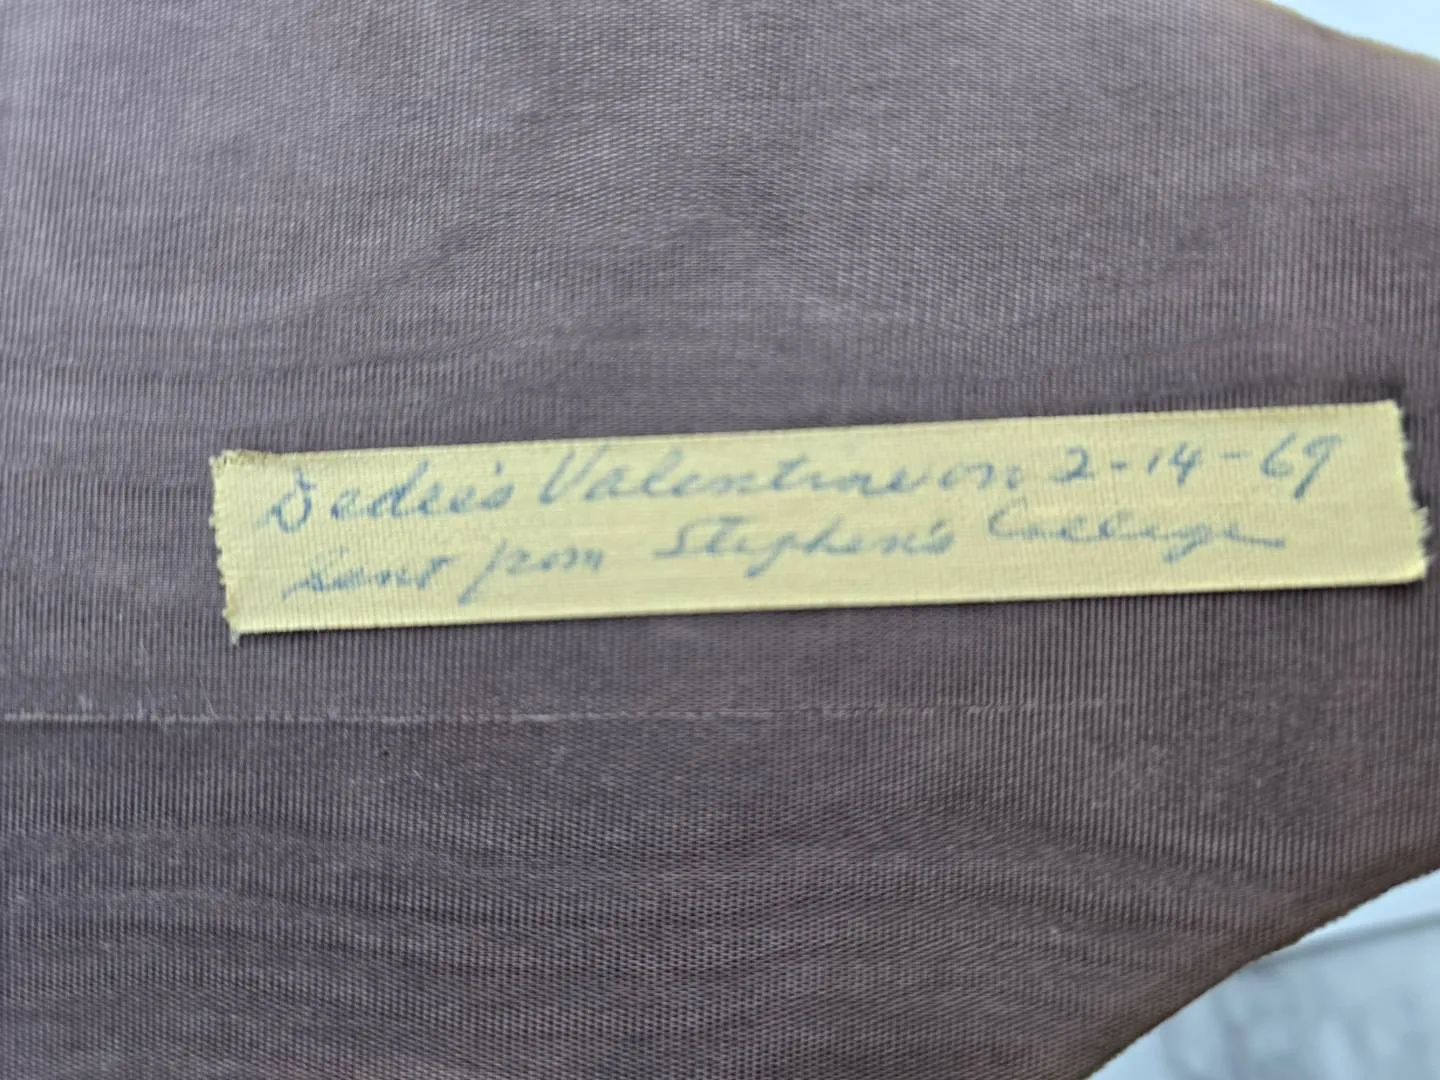 Dedee's Valentine on 2-14-69
Sent from Stephen's College